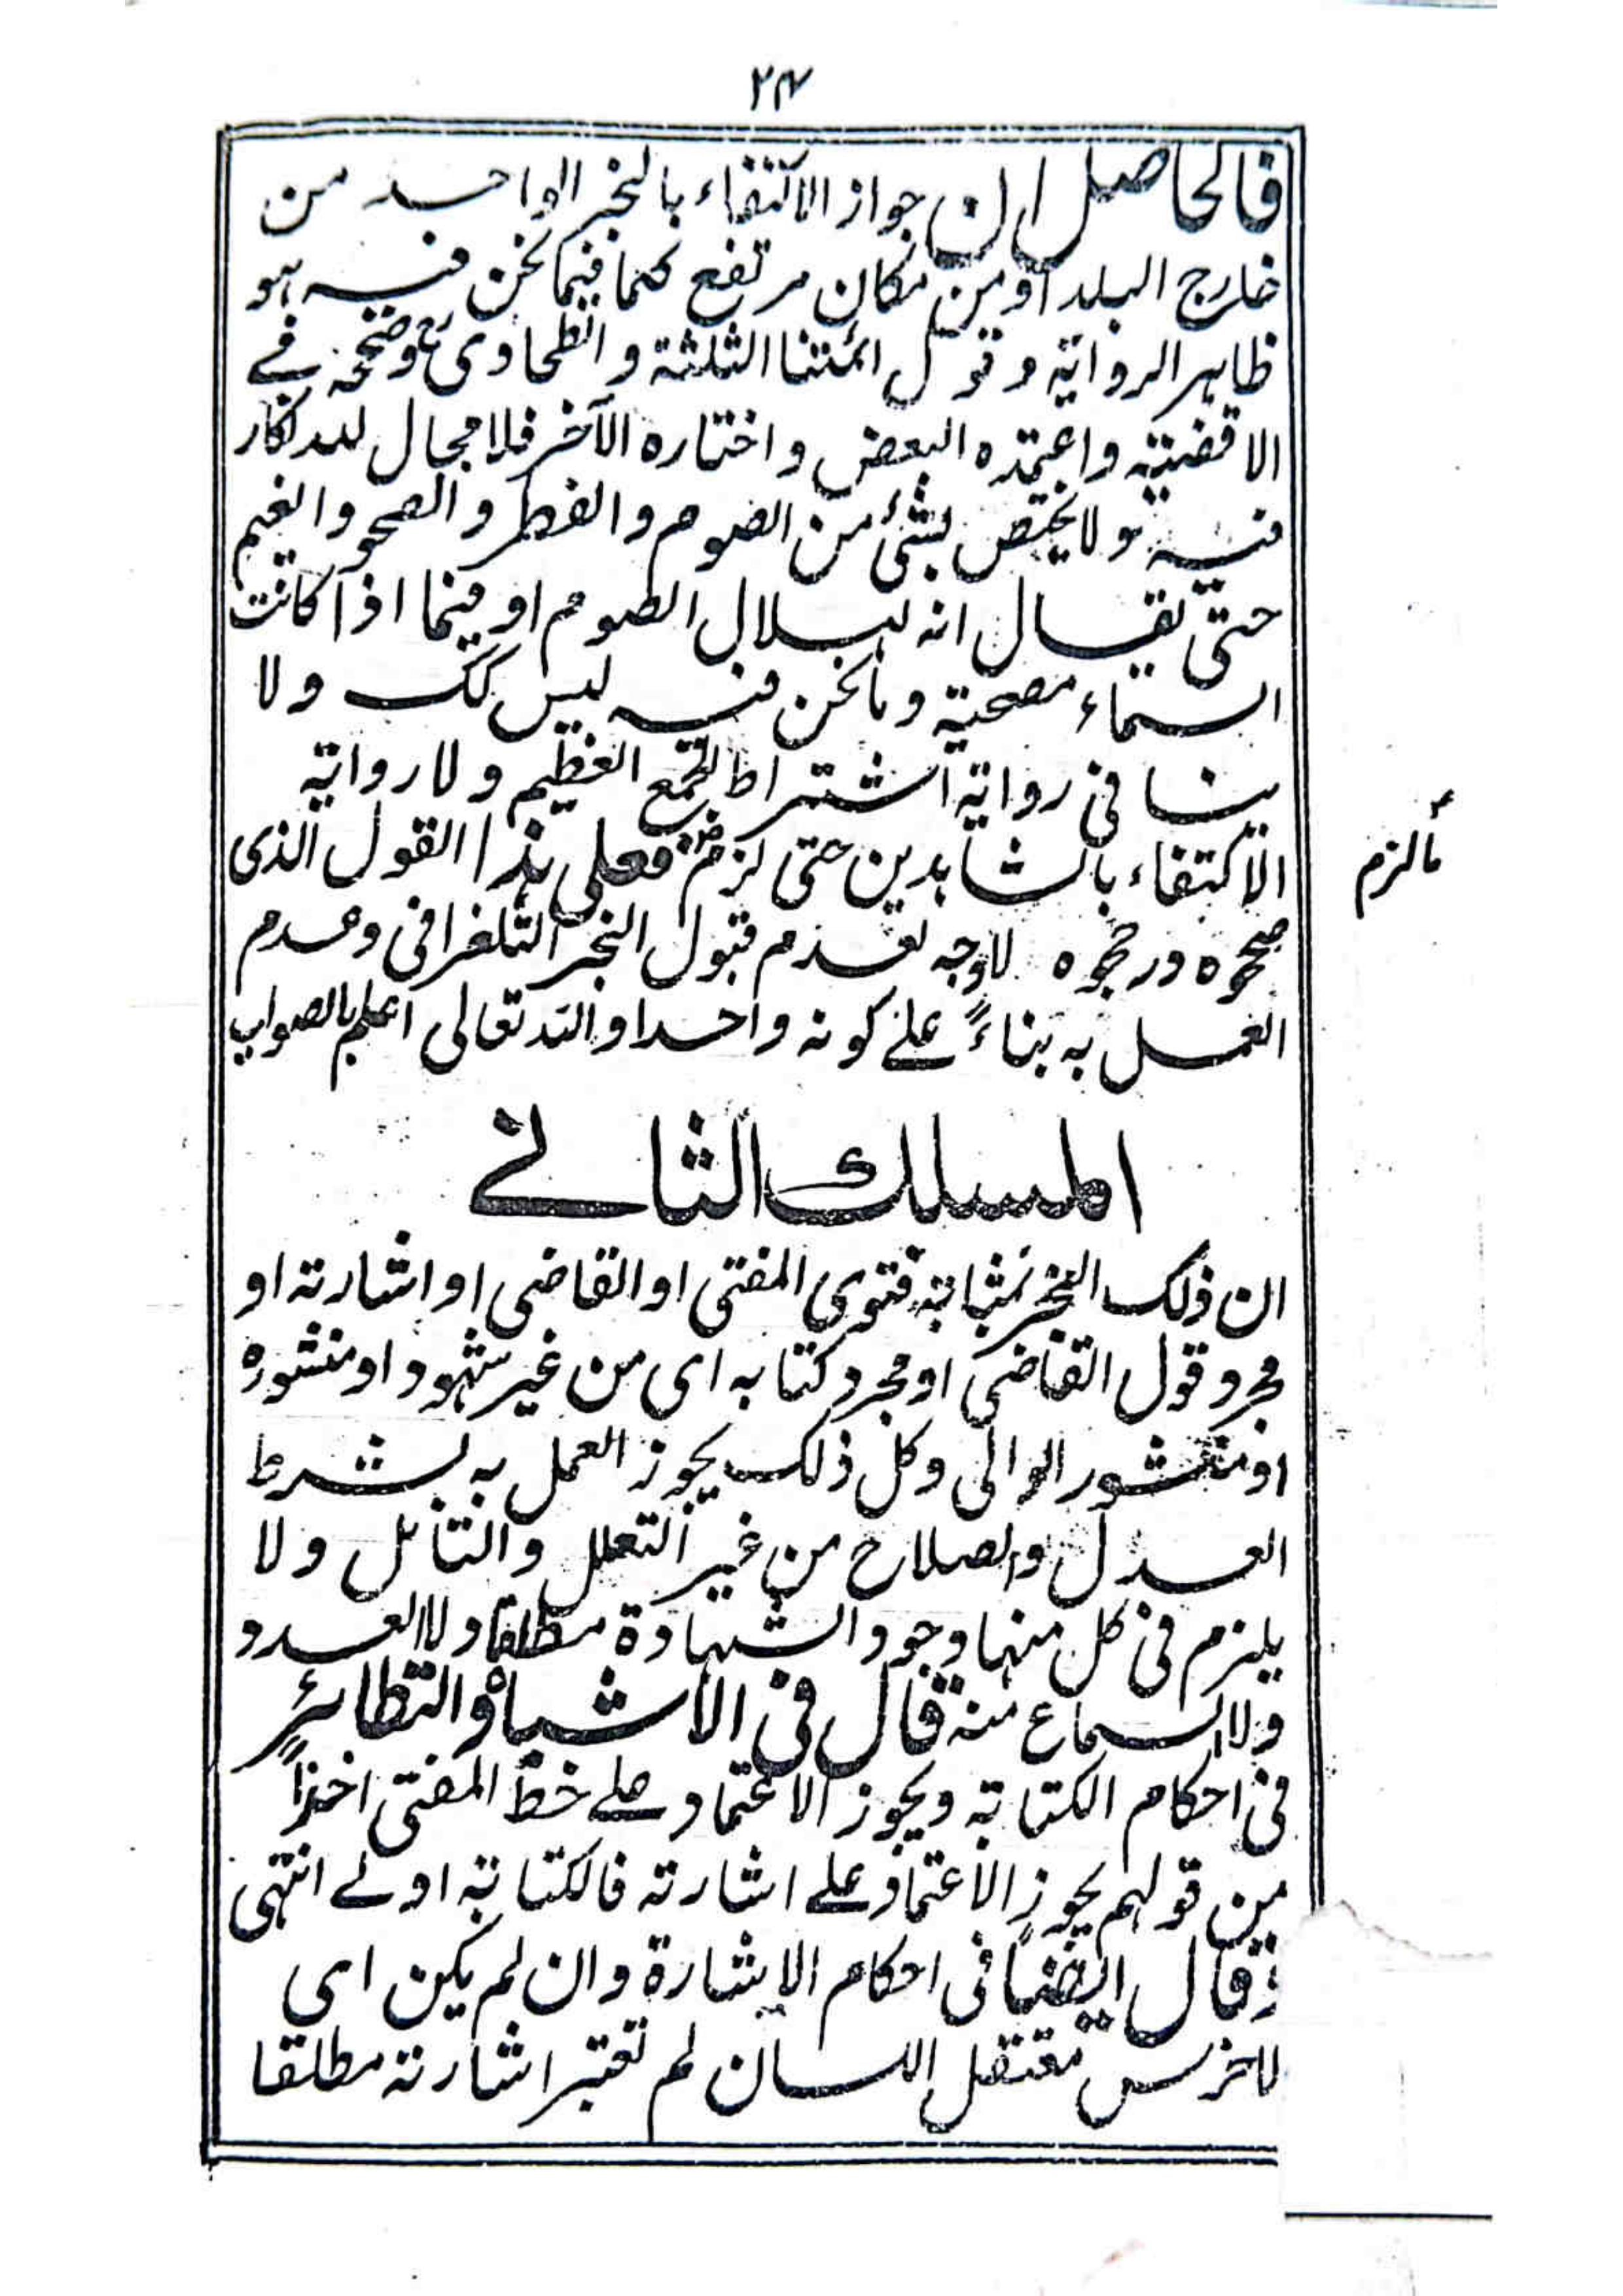 ٢٧
فالحاصل ان جواز الاكتفاء بالخبر الواحد من
خارج البلد او من مكان مرتفع كما فيما نحن فيه هو
ظاهر الرواية وقول ائمتنا الثلثة والطحاوى وصححه فے
الاقضية واعتمده البعض واختاره الآخر فلا مجال للانكار
فيه ولا يختص بشئ من الصوم والفطر والصحو والغيم
حتى يقال انه لهلال الصوم او فيما اذا كانت
السماء مصحية وما نحن فيه ليس كك ولا
ينافى رواية اشتراط الجمع العظيم ولا رواية
الاكتفاء بالشاهدين حتى لزم فعلى هذا القول الذى
صححوه ورجحوه لا وجه لعدم قبول الخبر التلغرافى وعدم
العمل به بناءً علے كونه واحدا والله تعالى اعلم بالصواب
ما لزم
المسلك الثانے
ان ذلك الخبر بمثابة فتوى المفتى او القاضى او اشارته او
مجرد قول القاضى او مجرد كتابه اى من غير شهود او منشوره
او منشور الوالى وكل ذلك يجوز العمل به بشرط
العدل والصلاح من غير التعلل والتأمل ولا
يلزم فى كل منها وجود الشهادة مطلقا ولا العدد
ولا السماع منه قال فى الاشباه والنظائر
فى احكام الكتابة ويجوز الاعتماد علے خط المفتى اخذاً
من قولهم يجوز الاعتماد علے اشارته فالكتابة اولے انتهى
وقال ايضا فى احكام الاشارة وان لم يكن اى
لاخرس معتقل اللسان لم تعتبر اشارته مطلقا